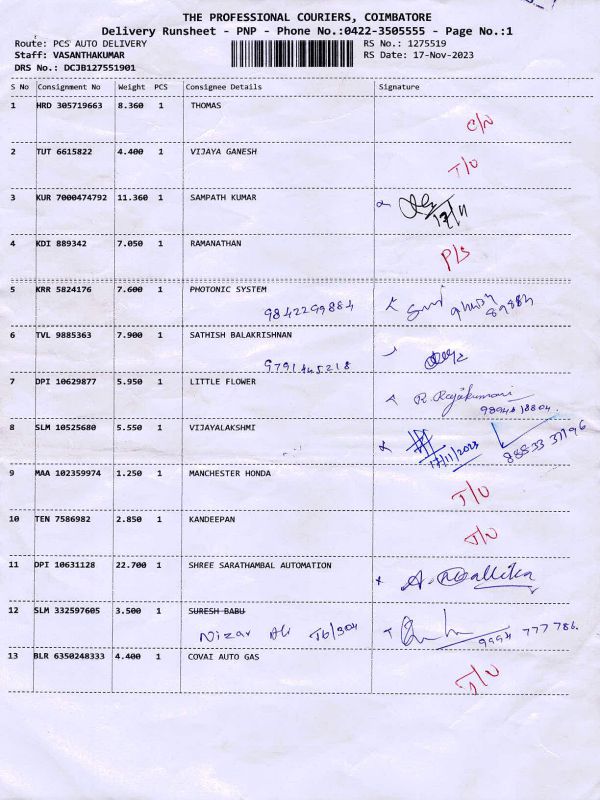 THE PROFESSIONAL COURIERS, COIMBATORE
Delivery Runsheet - PNP - Phone No.:0422-3505555 - Page No.:1
Route: PCS AUTO DELIVERY RS No.: 1275519
Staff: VASANTHAKUMAR RS Date: 17-Nov-2023
DRS No.: DCJB127551901
S No Consignment No Weight PCS Consignee Details Signature
1 HRD 305719663 8.360 1 THOMAS
C/N
2 TUT 6615822 4.400 1 VIJAYA GANESH
T/U
3 KUR 7000474792 11.360 1 SAMPATH KUMAR
17/11
4 KDI 889342 7.050 1 RAMANATHAN
P/S
5 KRR 5824176 7.600 1 PHOTONIC SYSTEM
9842299884
6 TVL 9885363 7.900 1 SATHISH BALAKRISHNAN
9791445218
7 DPI 10629877 5.950 1 LITTLE FLOWER
R. Rajakumari
8 SLM 10525680 5.550 1 VIJAYALAKSHMI
17/11/2023 88533 37196
9 MAA 102359974 1.250 1 MANCHESTER HONDA
T/U
10 TEN 7586982 2.850 1 KANDEEPAN
T/U
11 DPI 10631128 22.700 1 SHREE SARATHAMBAL AUTOMATION
A. Mallika
12 SLM 332597605 3.500 1 SURESH BABU
Nizar Ali Tb/304 9994 777 786.
13 BLR 6350248333 4.400 1 COVAI AUTO GAS
T/U